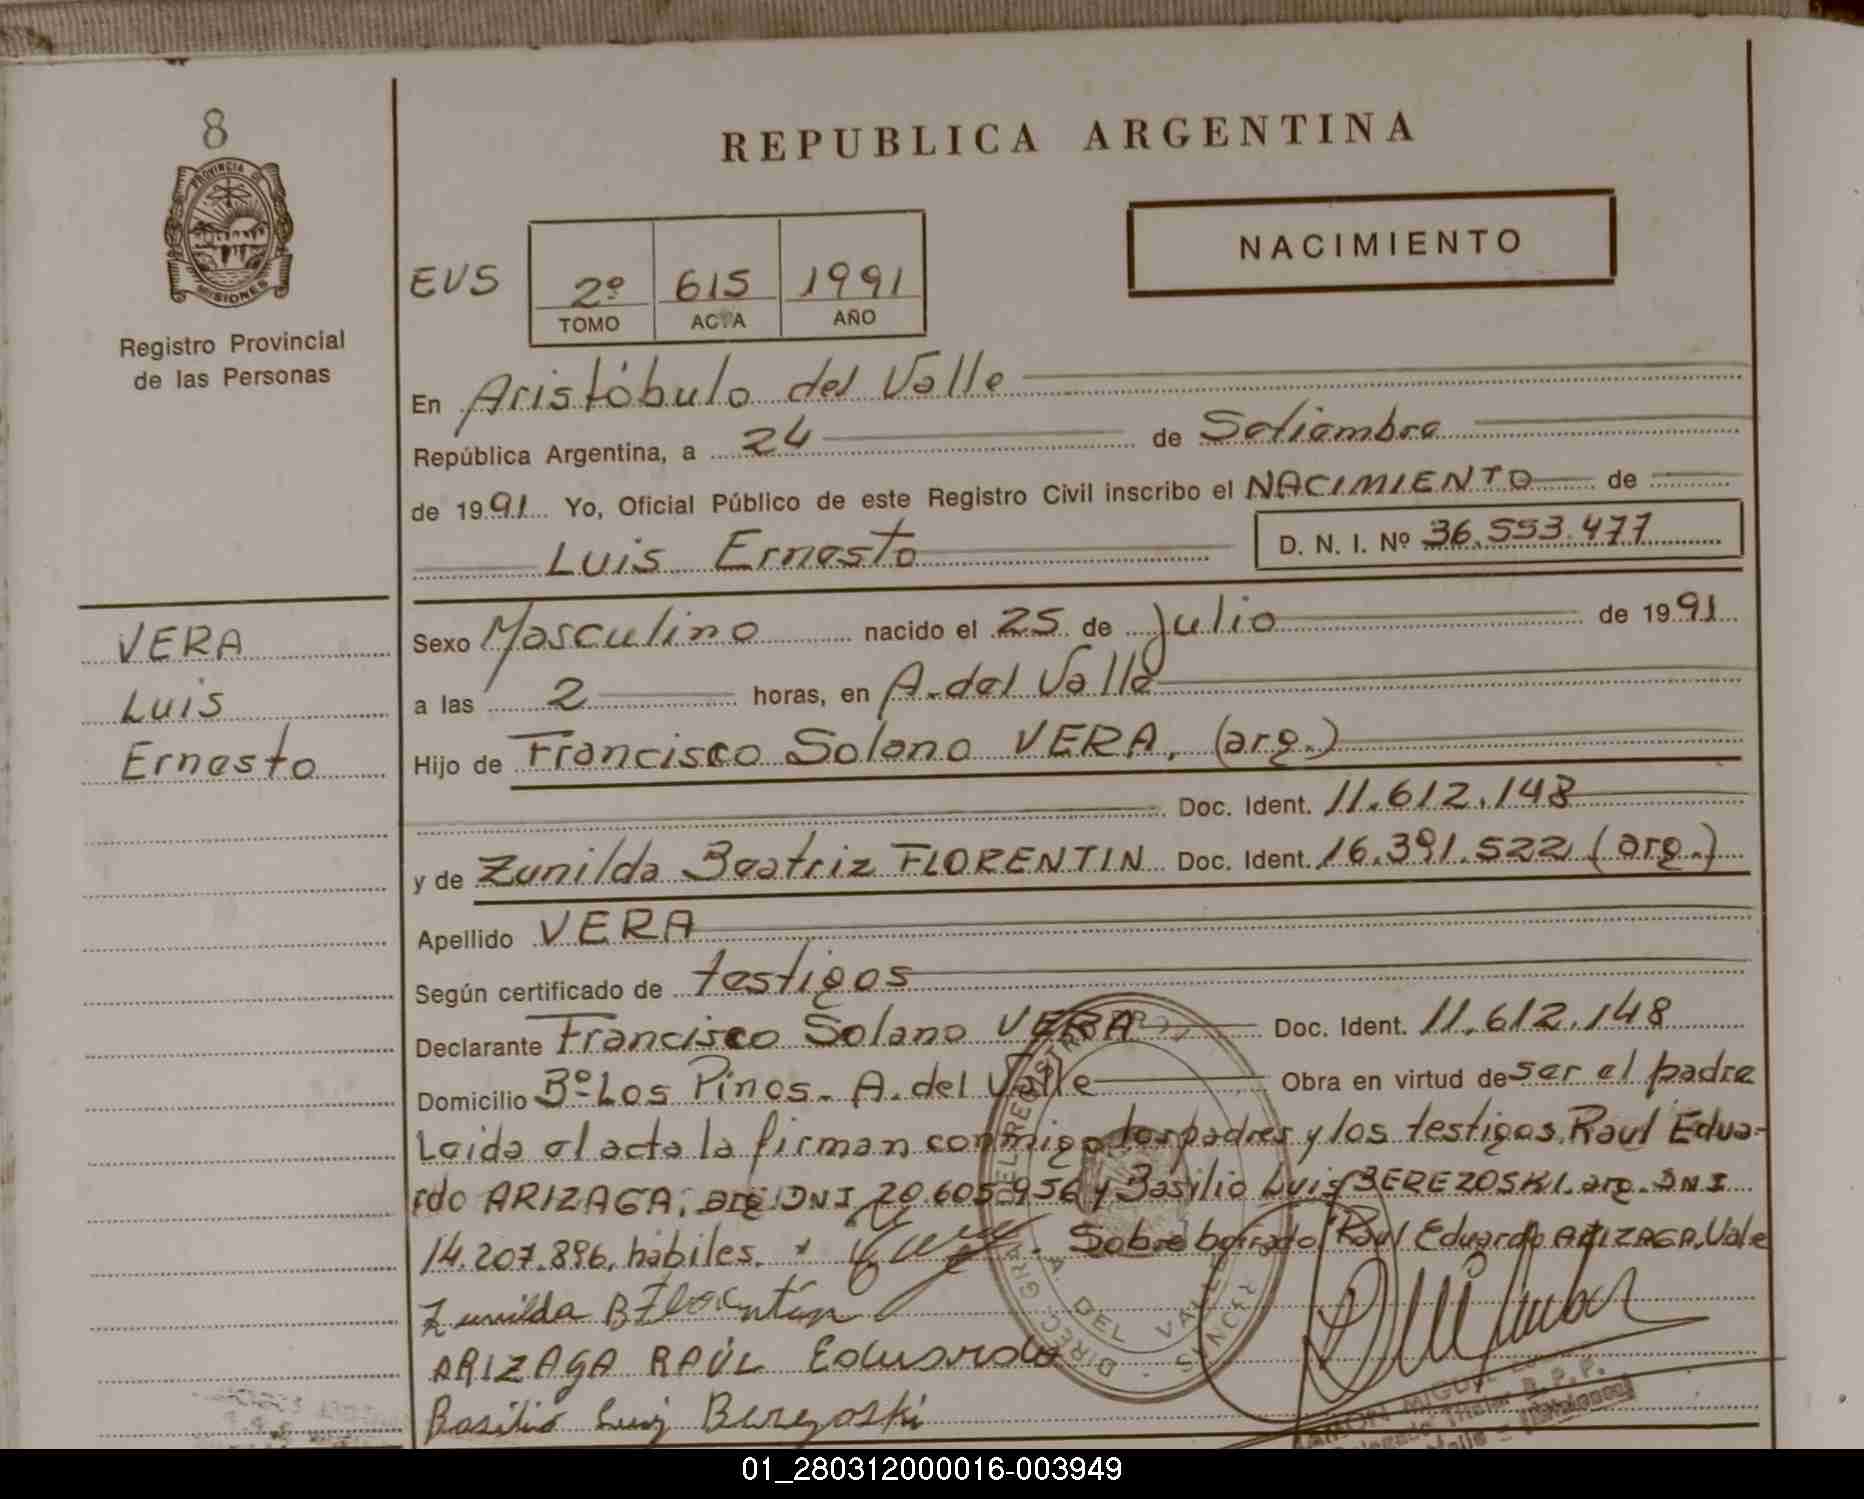 8
PROVINCIA DE
MISIONES
Registro Provincial
de las Personas
REPUBLICA ARGENTINA
NACIMIENTO
EVS
2º 615 1991
TOMO ACTA AÑO
En Aristóbulo del Valle
República Argentina, a 24 de Setiembre
de 1991 Yo, Oficial Público de este Registro Civil inscribo el NACIMIENTO de
Luis Ernesto D. N. I. Nº 36.553.477
VERA
Luis
Ernesto
Sexo Masculino nacido el 25 de Julio de 1991
a las 2 horas, en A. del Valle
Hijo de Francisco Solano VERA, (arg.)
Doc. Ident. 11.612.148
y de Zunilda Beatriz FLORENTIN Doc. Ident. 16.391.522 (arg.)
Apellido VERA
Según certificado de testigos
Declarante Francisco Solano VERA Doc. Ident. 11.612.148
Domicilio Bº Los Pinos. A. del Valle Obra en virtud de ser el padre
Leida el acta la firman conmigo los padres y los testigos Raul Edua-
rdo ARIZAGA, arg DNI 20.605.956 y Basilio Luis BEREZOSKI. arg. DNI
14.207.896, habiles. Sobre borrado Raul Eduardo ARIZAGA. Vale
Zunilda B Florentín
ARIZAGA RAÚL Eduardo
Basilio Luis Berezoski
DEL VALLE
01_280312000016-003949